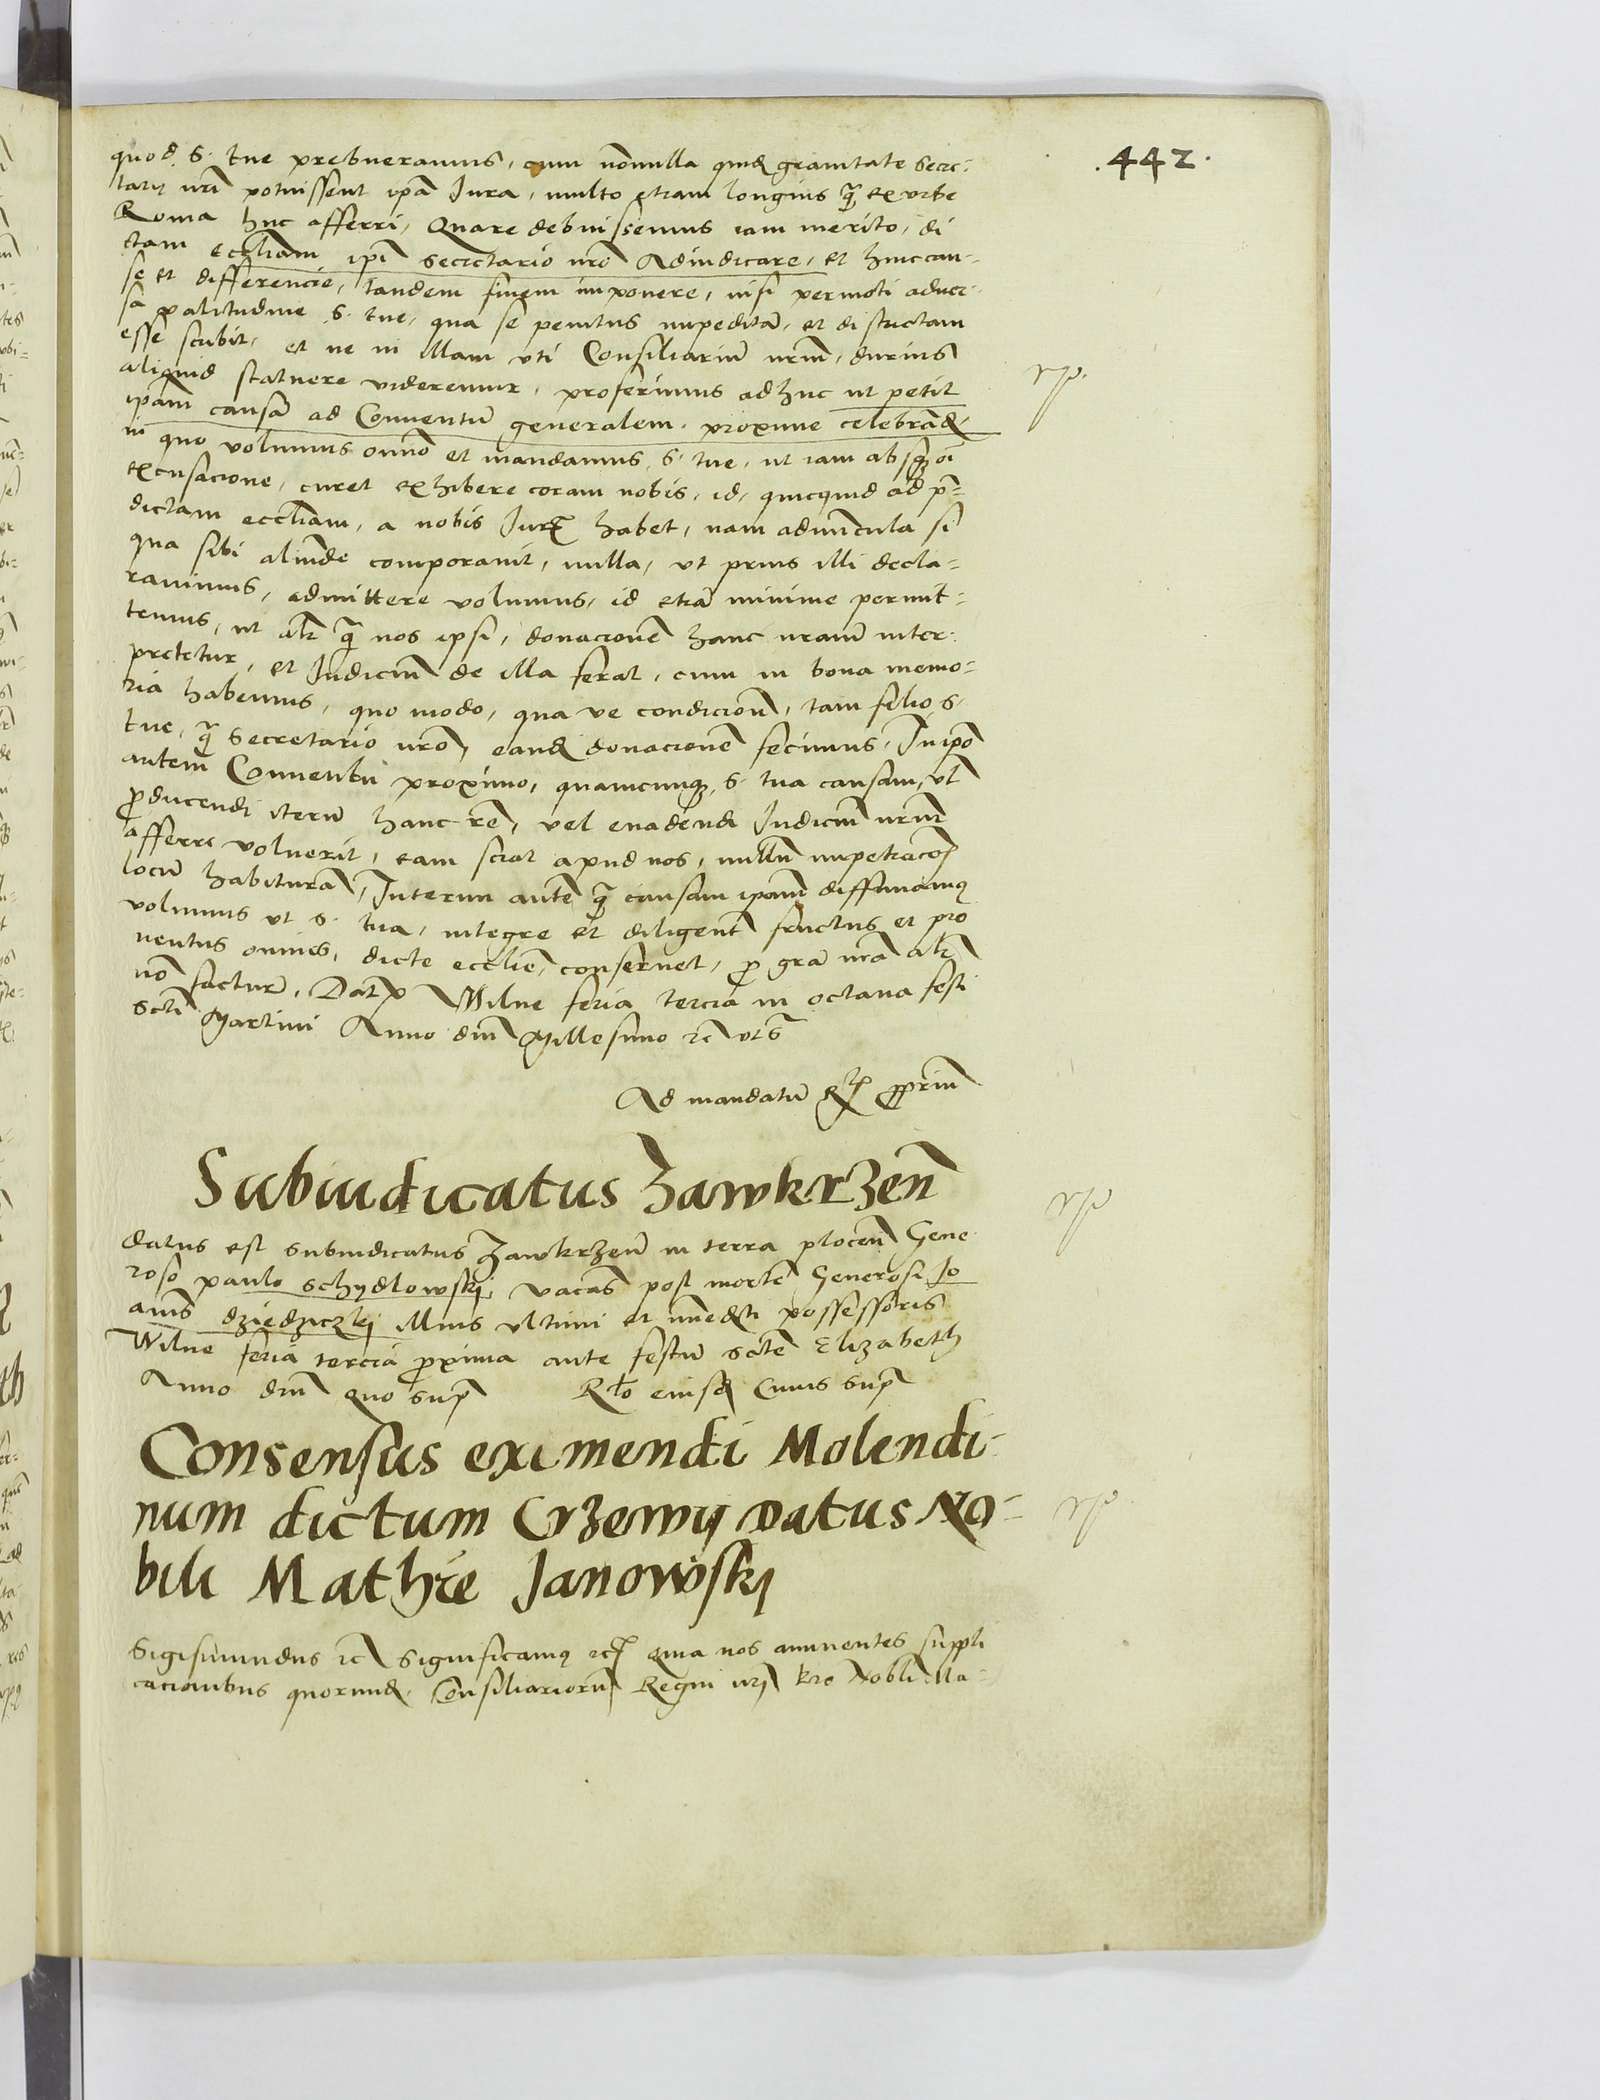 .442.
quod S. tue prebueramus, cum nonulla quidē gravitate secre-
tarij nri potuissent ipa Jura, multo etiam longius q̃ ex urbe
Roma huc afferri, Quare debuissemus iam merito, di
ctam eccliam ipi secretario nro Adiudicare, et huic cau-
se et differencie, tandem finem imponere, nisi permoti adver-
sa valitudine S. tue, qua se penitus impeditā, et districtam
esse scribit, et ne in illam uti Consiliariū nrm, durius
aliquid statuere videremur, proferimus adhuc ut petit
ipam causā ad Conventū generalem proxime celebrand
in quo volumus omno et mandamus S. tue, ut iam absq oi
excusacione, curet exhibere coram nobis, id, quicquid ad p-
dictam eccliam, a nobis Juris habet, nam adminicula si
qua sibi aliunde comporavit, nulla, ut prius illi decla-
ravimus, admittere volumus, id etiā minime permit-
temus, ut alr q̃ nos ipsi, donacionē hanc nram inter-
pretetur, et Judiciū de illa ferat, cum in bona memo-
ria habemus, quo modo, qua ve condicion, tam filio S.
tue, q̃ Secretario nro, eand donacionē fecimus, In ipo
autem Conventu proximo, quamcunq S. tua causam, vl
producendi iterū hanc rē, vel evadendi Judiciū nrm
afferre voluerit, eam sciat apud nos, nullū impetracois
locū habiturā, Interim autē q̃ causam ipam diffiniamus
volumus ut S. tua, integre et diligent fructus et pro
ventus omnes, dicte ecclie, conservet, p gra nra alr
nō facturꝰ, Dat Wilne feria tercia in octava festi
scti Martini Anno dni Millesimo rc uts
Ad mandatū R proprium
Subiudicatus Zawkrzen
Datus est subiudicatus Zawkrzen in terra plocen Gene
roso paulo Schydlowskj, vacās post mortē Generosi Jo
anis dziedziczkj illius ultimi et imediti possessoris
Wilne feria tercia proxima ante festū scte Elizabeth
Anno dni quo sup Rlo eiusd Cuius sup
Consensus eximendi Molendi-
num dictum Crzewij datus No-
bili Mathie Janowskj
Sigismundus rc Significamus rc Quia nos annuentes suppli
cacionibus quorund Consiliariorū Regni nri pro Nobli Ma-